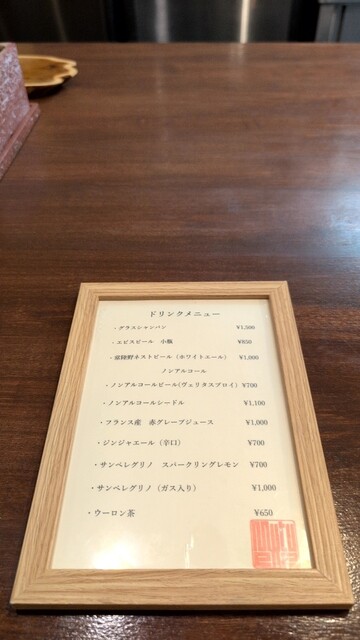 ドリンクメニュー
・グラスシャンパン ¥1,500
・エビスビール 小瓶 ¥850
・常陸野ネストビール（ホワイトエール） ¥1,000
ノンアルコール
・ノンアルコールビール(ヴェリタスブロイ) ¥700
・ノンアルコールシードル ¥1,100
・フランス産 赤グレープジュース ¥1,000
・ジンジャエール（辛口） ¥700
・サンペレグリノ スパークリングレモン ¥700
・サンペレグリノ（ガス入り） ¥1,000
・ウーロン茶 ¥650